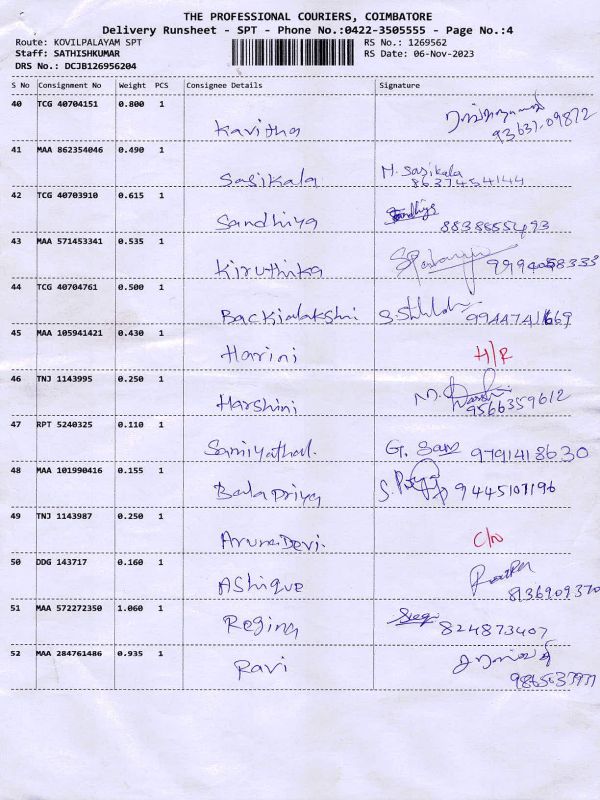 THE PROFESSIONAL COURIERS, COIMBATORE
Delivery Runsheet - SPT - Phone No.:0422-3505555 - Page No.:4
Route: KOVILPALAYAM SPT RS No.: 1269562
Staff: SATHISHKUMAR RS Date: 06-Nov-2023
DRS No.: DCJB126956204
S No Consignment No Weight PCS Consignee Details Signature
40 TCG 40704151 0.800 1 Kavitha
41 MAA 862354046 0.490 1 Sasikala M. Sasikala
8637454144
42 TCG 40703910 0.615 1 Sandhiya Sandhiya 8838555493
43 MAA 571453341 0.535 1 Kiruthika
44 TCG 40704761 0.500 1 Backialakshni
45 MAA 105941421 0.430 1 Harini H/R
46 TNJ 1143995 0.250 1 Harshini M.
9566359612
47 RPT 5240325 0.110 1 Samiyathal. G. Sam 9791418630
48 MAA 101990416 0.155 1 Bala Priya S. Priya 9445107196
49 TNJ 1143987 0.250 1 Aruna Devi.
50 DDG 143717 0.160 1 AShique
8136909370
51 MAA 572272350 1.060 1 Regina 824873407
52 MAA 284761486 0.935 1 Ravi